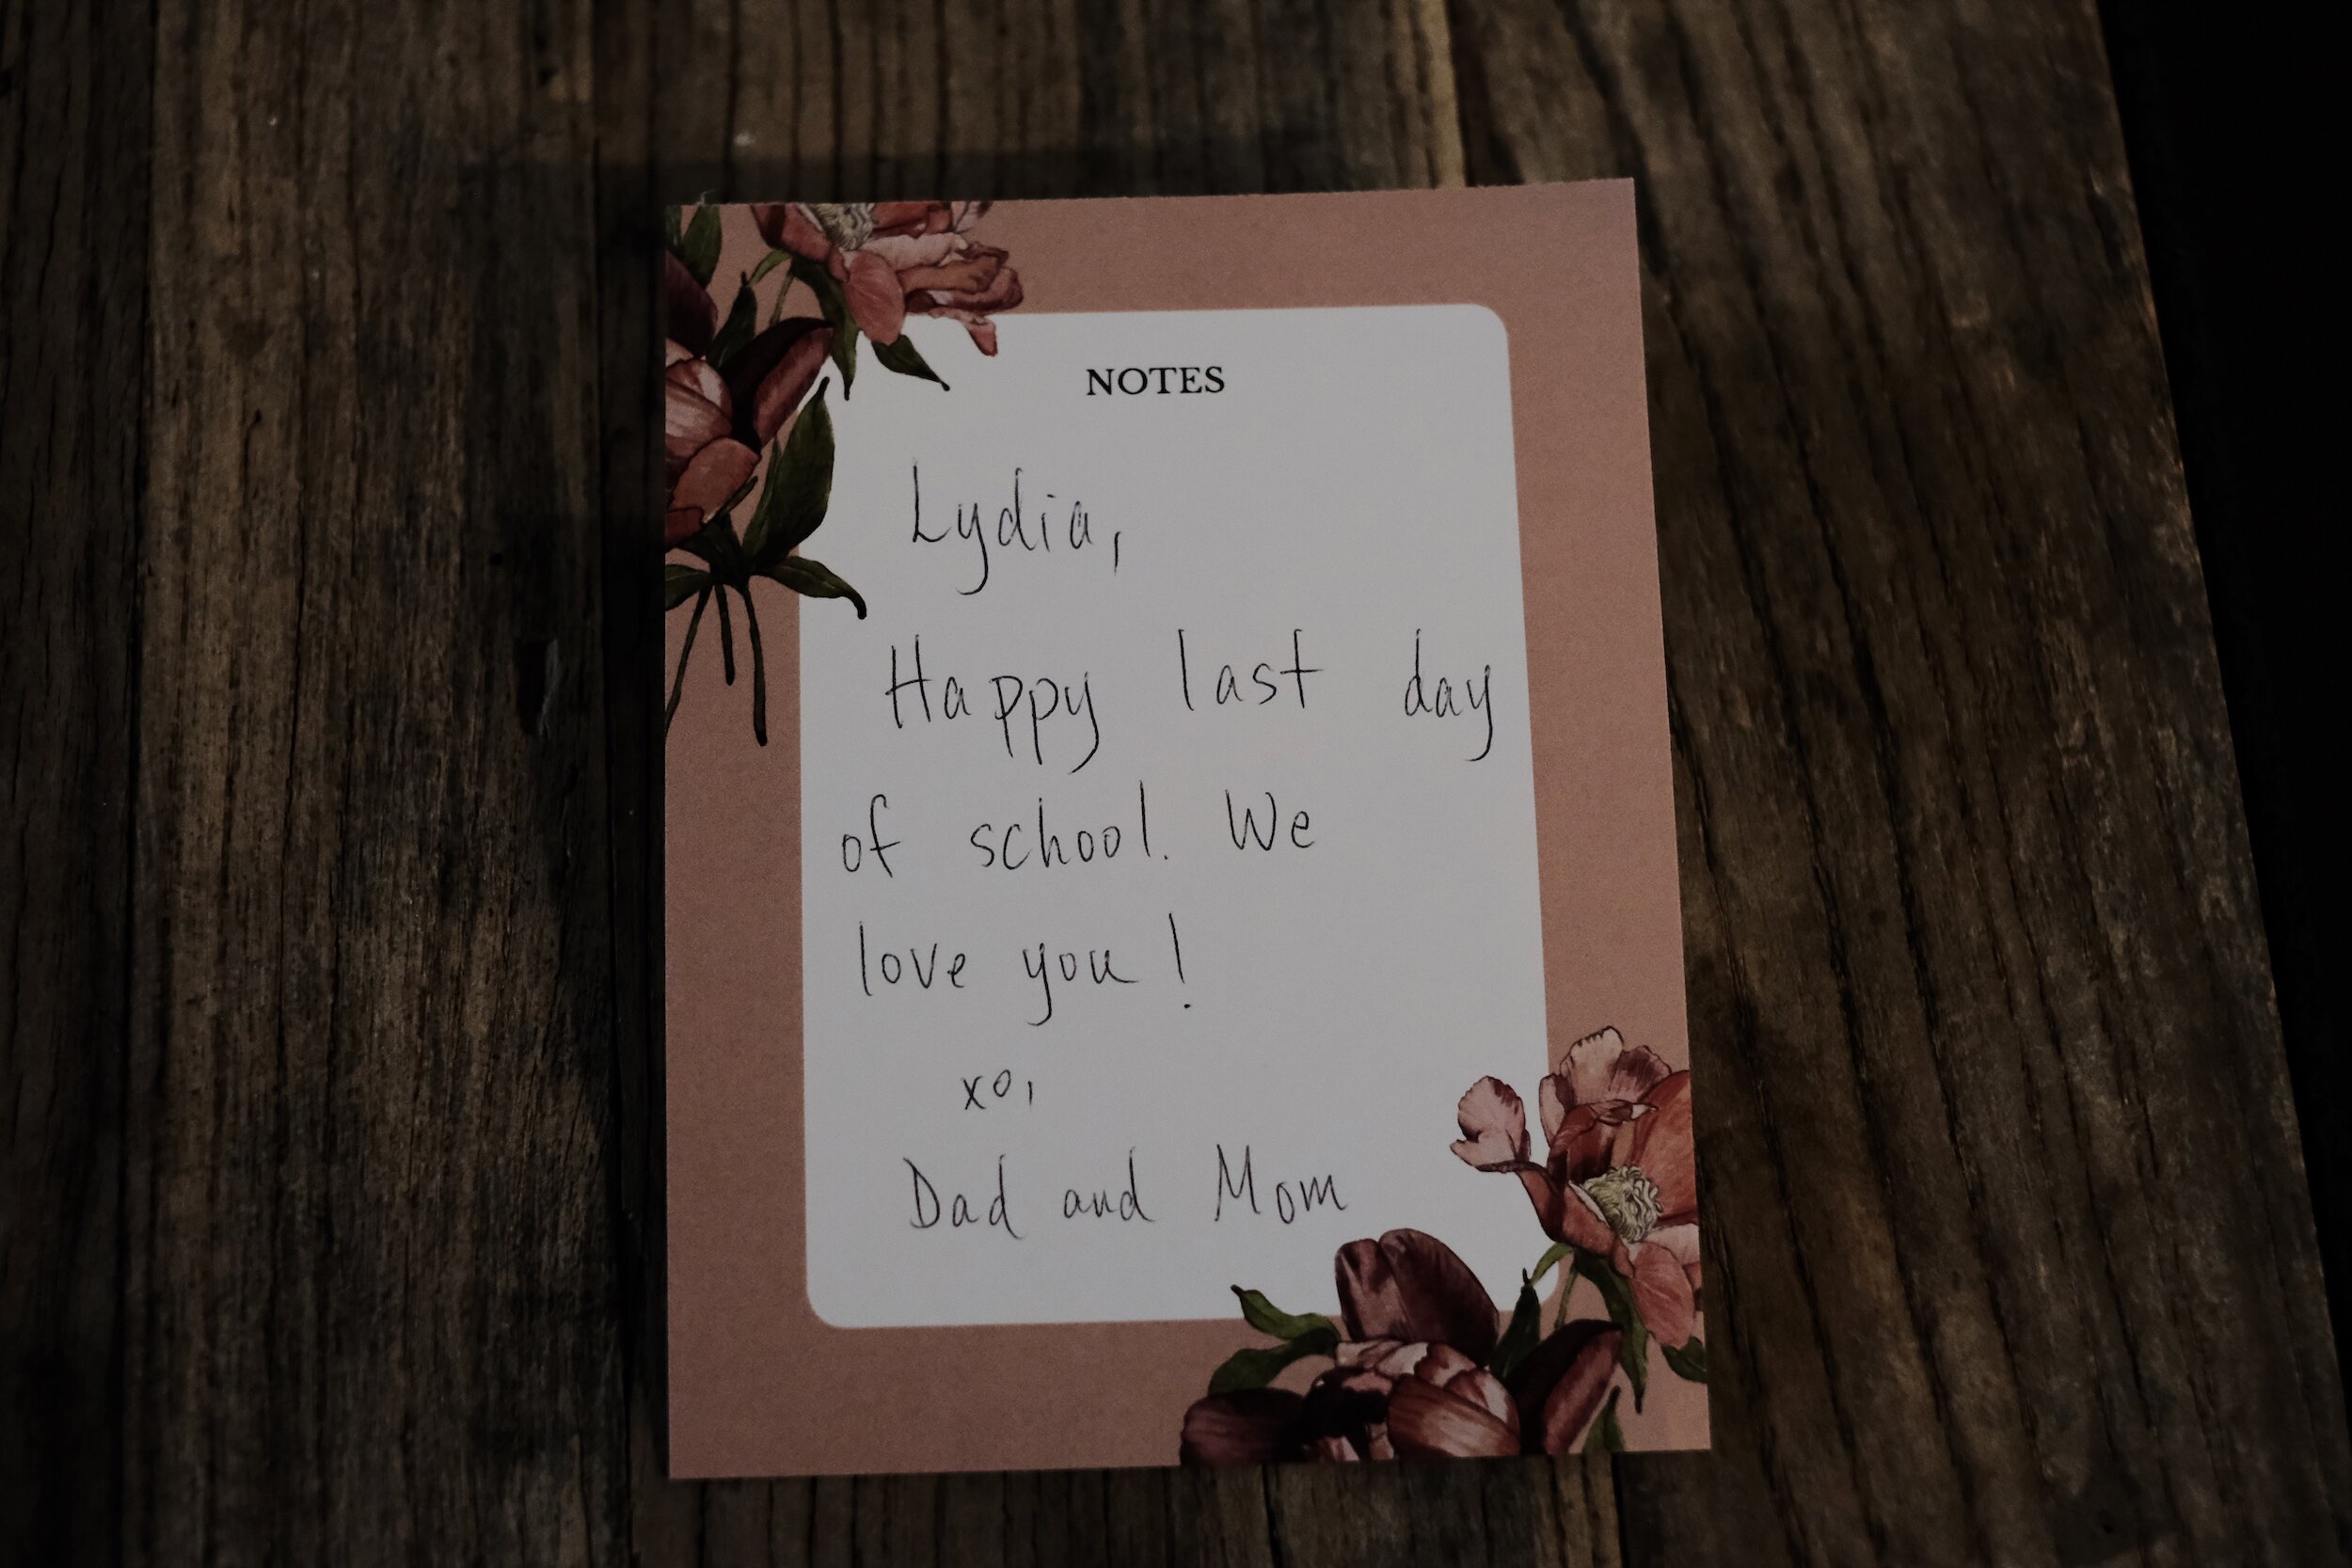 NOTES
Lydia,
Happy last day
of school. We
love you!
xo,
Dad and Mom